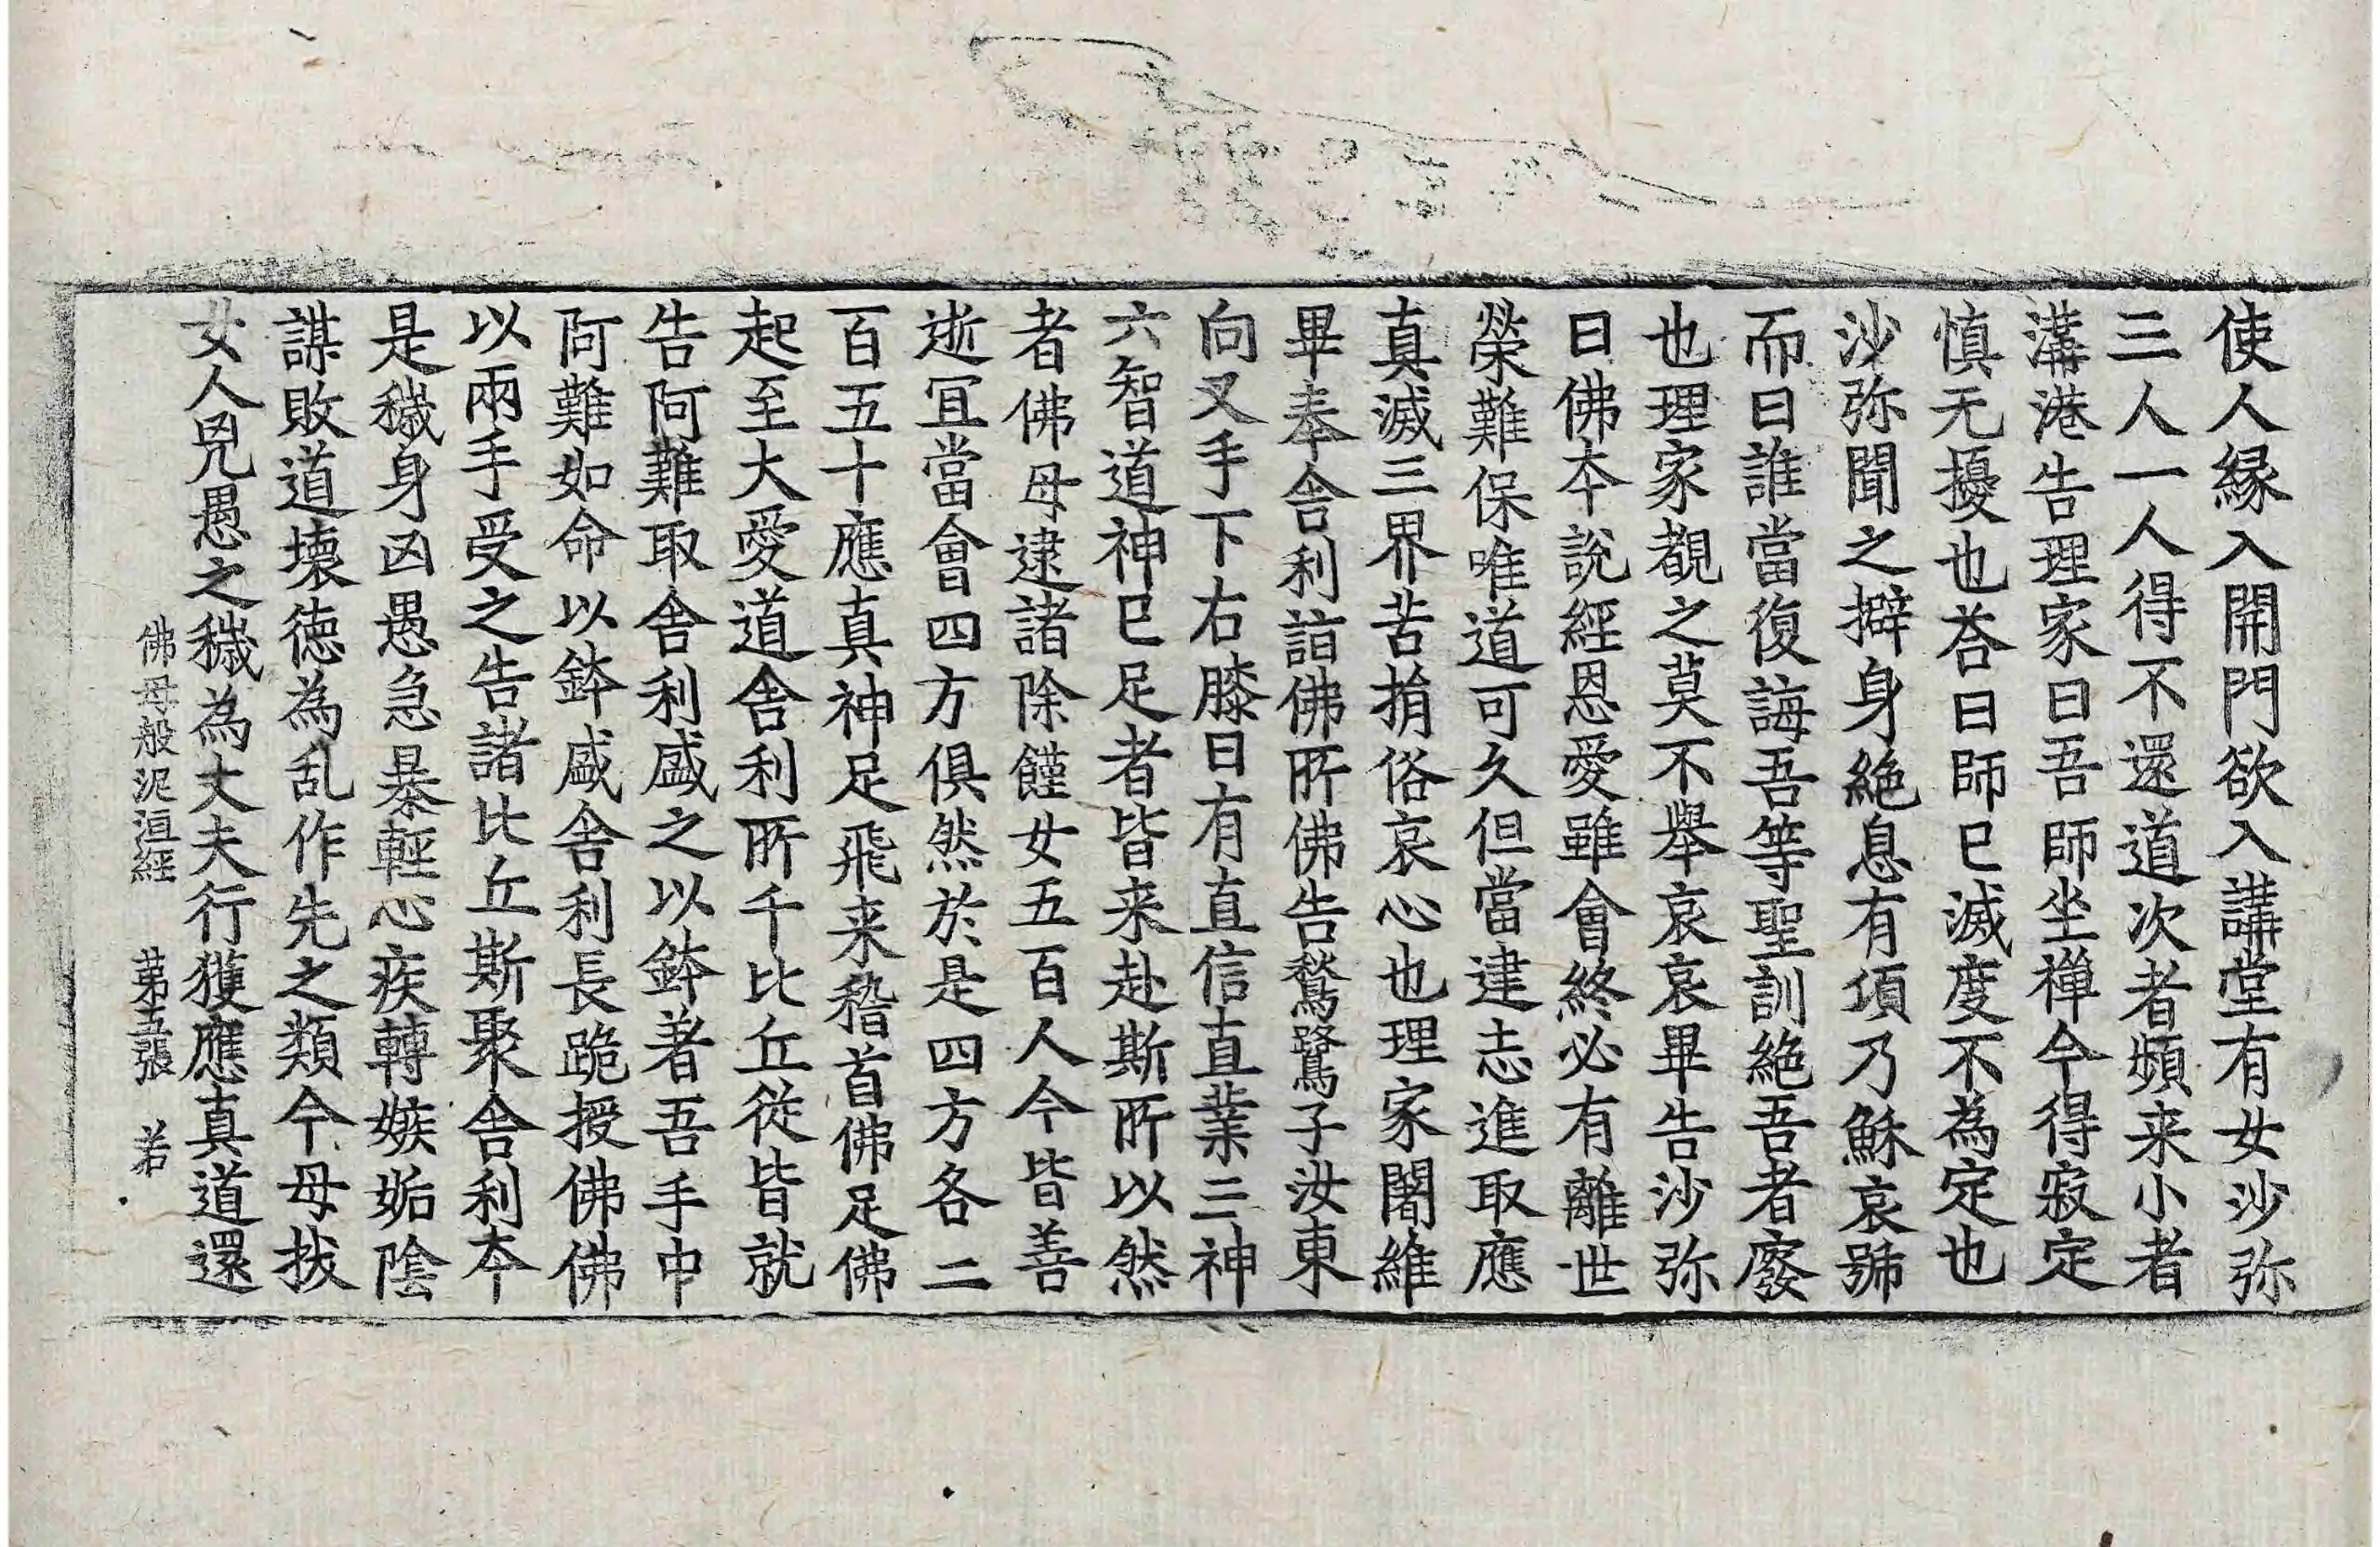 使人緣入開門欲入講堂有女沙弥
三人一人得不還道次者頻来小者
溝港告理家曰吾師坐禪今得寂定
慎无擾也荅曰師已滅度不為定也
沙弥聞之擗身絶息有頃乃穌哀號
而曰誰當復誨吾等聖訓絶吾者廢
也理家覩之莫不舉哀哀畢告沙弥
曰佛本說經恩愛雖會終必有離世
榮難保唯道可久但當建志進取應
真滅三界苦捐俗哀心也理家闍維
畢奉舍利詣佛所佛告鶖鷺子汝東
向叉手下右膝曰有直信直業三神
六智道神已足者皆来赴斯所以然
者佛母逮諸除饉女五百人今皆善
逝冝當會四方俱然於是四方各二
百五十應真神足飛来稽首佛足佛
起至大愛道舍利所千比丘從皆就
告阿難取舍利盛之以鉢著吾手中
阿難如命以鉢盛舍利長跪授佛佛
以兩手受之告諸比丘斯聚舍利本
是穢身凶愚急暴輕心疾轉嫉妬陰
謀敗道壞德為乱作先之類今母拔
女人兇愚之穢為丈夫行獲應真道還
佛母般泥洹經 第五張 若